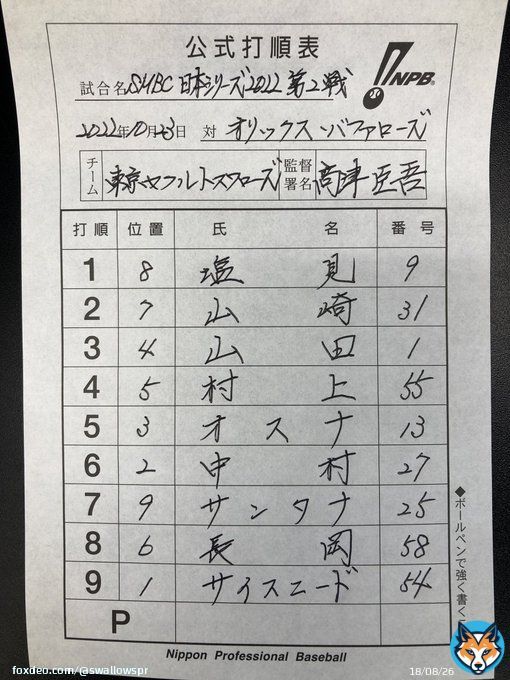 公式打順表
NPB
試合名 SMBC 日本シリーズ2022 第2戦
2022年10月23日 対 オリックス・バファローズ
チーム 東京ヤクルトスワローズ 監督署名 高津臣吾
打順 位置 氏名 番号
1 8 塩見 9
2 7 山崎 31
3 4 山田 1
4 5 村上 55
5 3 オスナ 13
6 2 中村 27
7 9 サンタナ 25
8 6 長岡 58
9 1 サイスニード 54
P
◆ボールペンで強く書く
Nippon Professional Baseball
foxdeo.com/@swallowspr
18/08/26